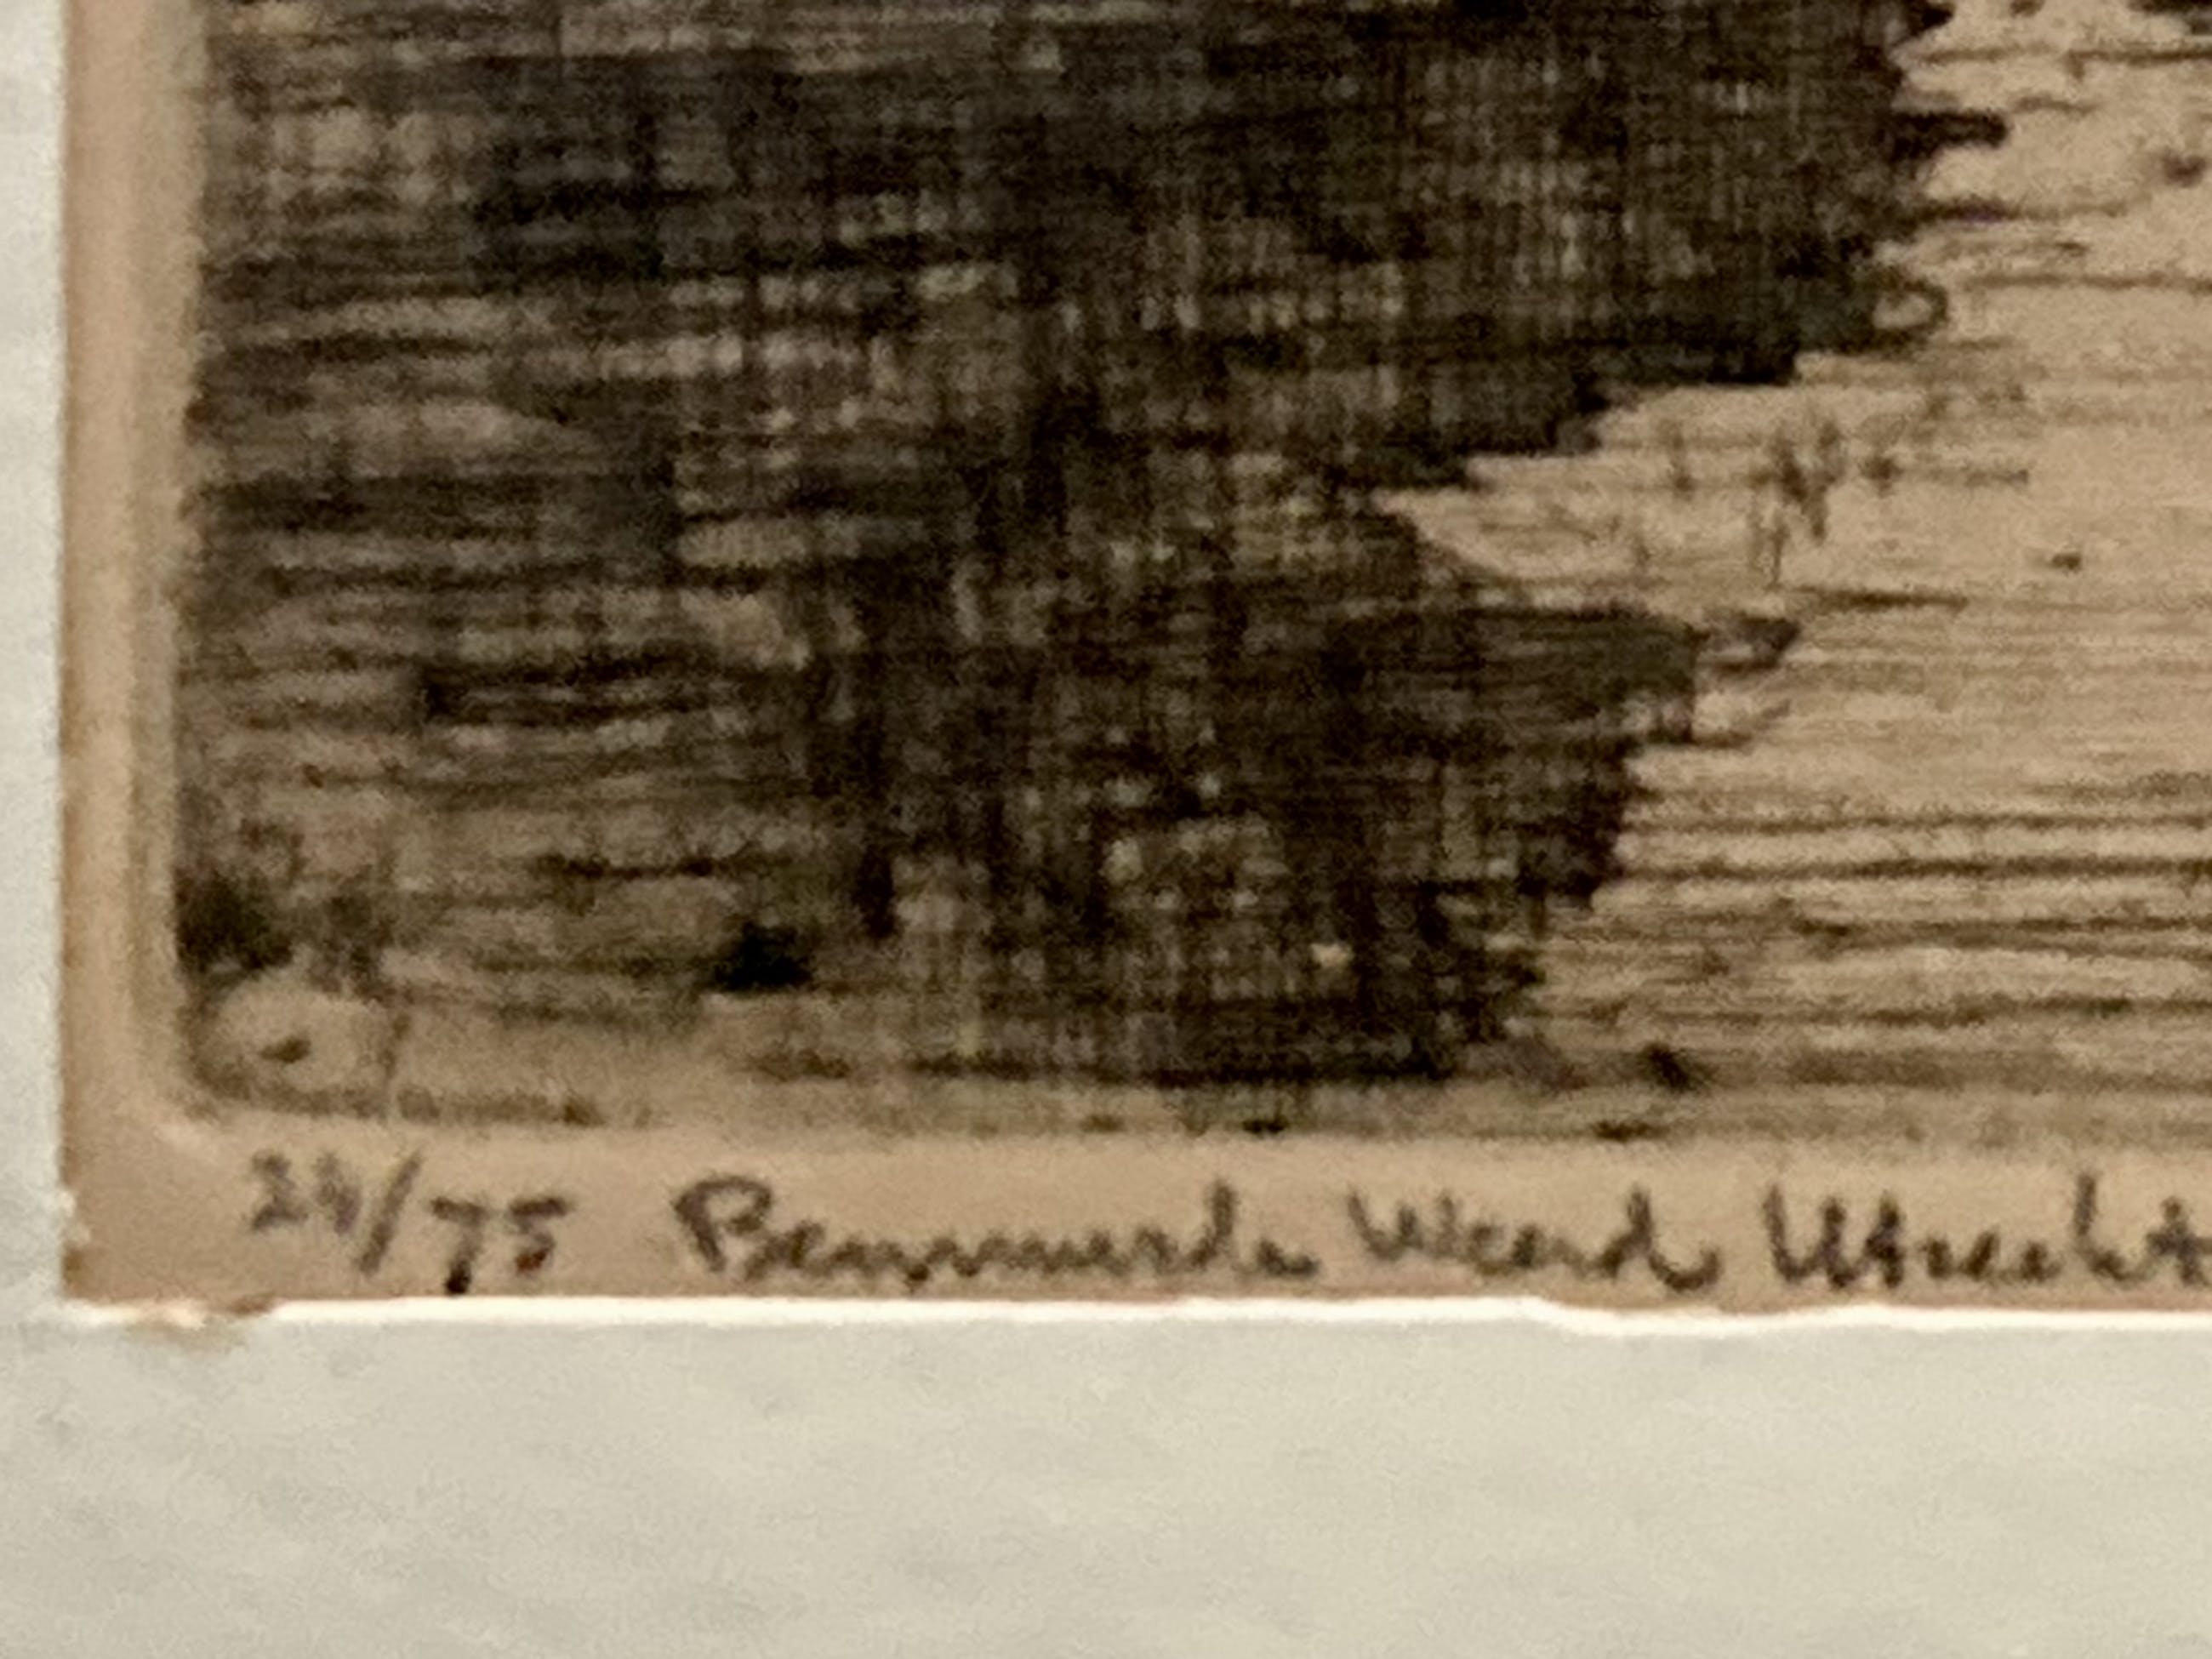 24/75 Bemuurde Weerd Utrecht